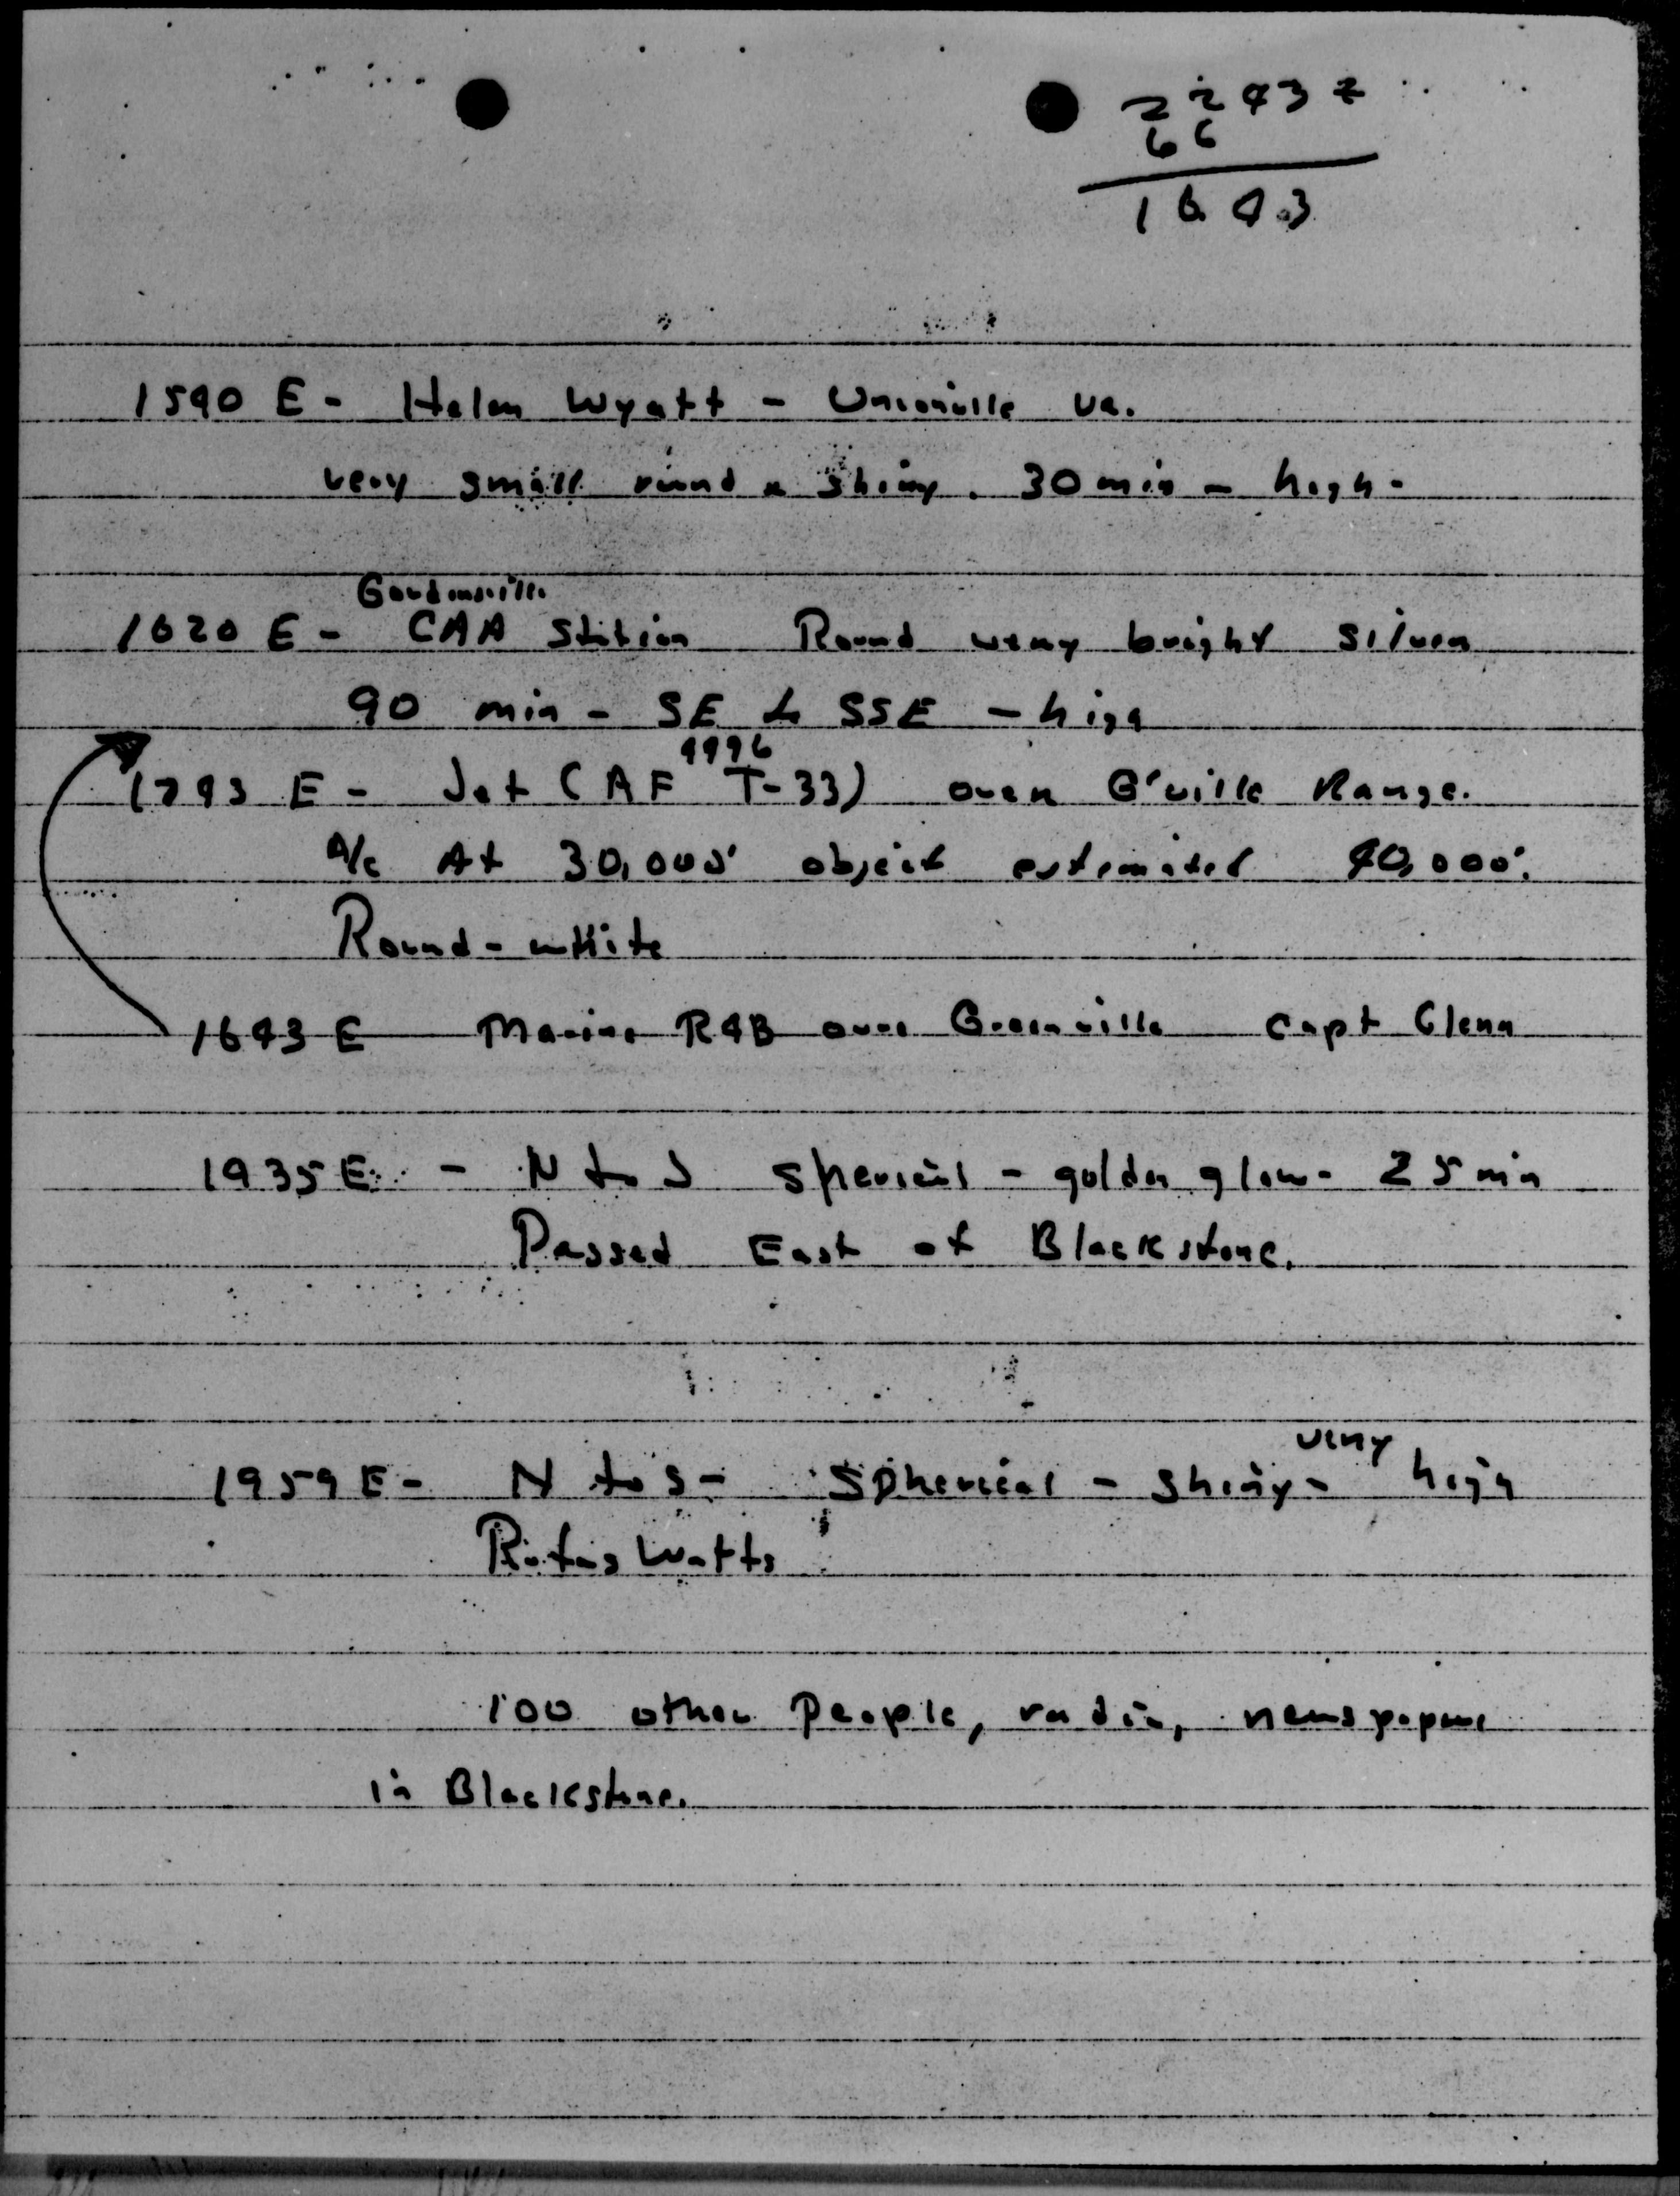 2243 Z
6 6
1643
1540 E - Helen Wyatt - Unionville Va.
very small round & shiny. 30 min - high -
Gordonsville
1620 E - CAA Station Round very bright silver
90 min - SE to SSE - high
4996
1743 E - Jet (AF T-33) over G'ville Range.
A/c At 30,000' object estimated 40,000'.
Round - white
1643 E Marine R4B over Greenville Capt Glenn
1935 E - N to S sperical - golden glow - 25 min
Passed East of Blackstone.
very
1959 E - N to S - Spherical - Shiny - high
Rufus Watts
100 other people, radio, newspapers
in Blackstone.